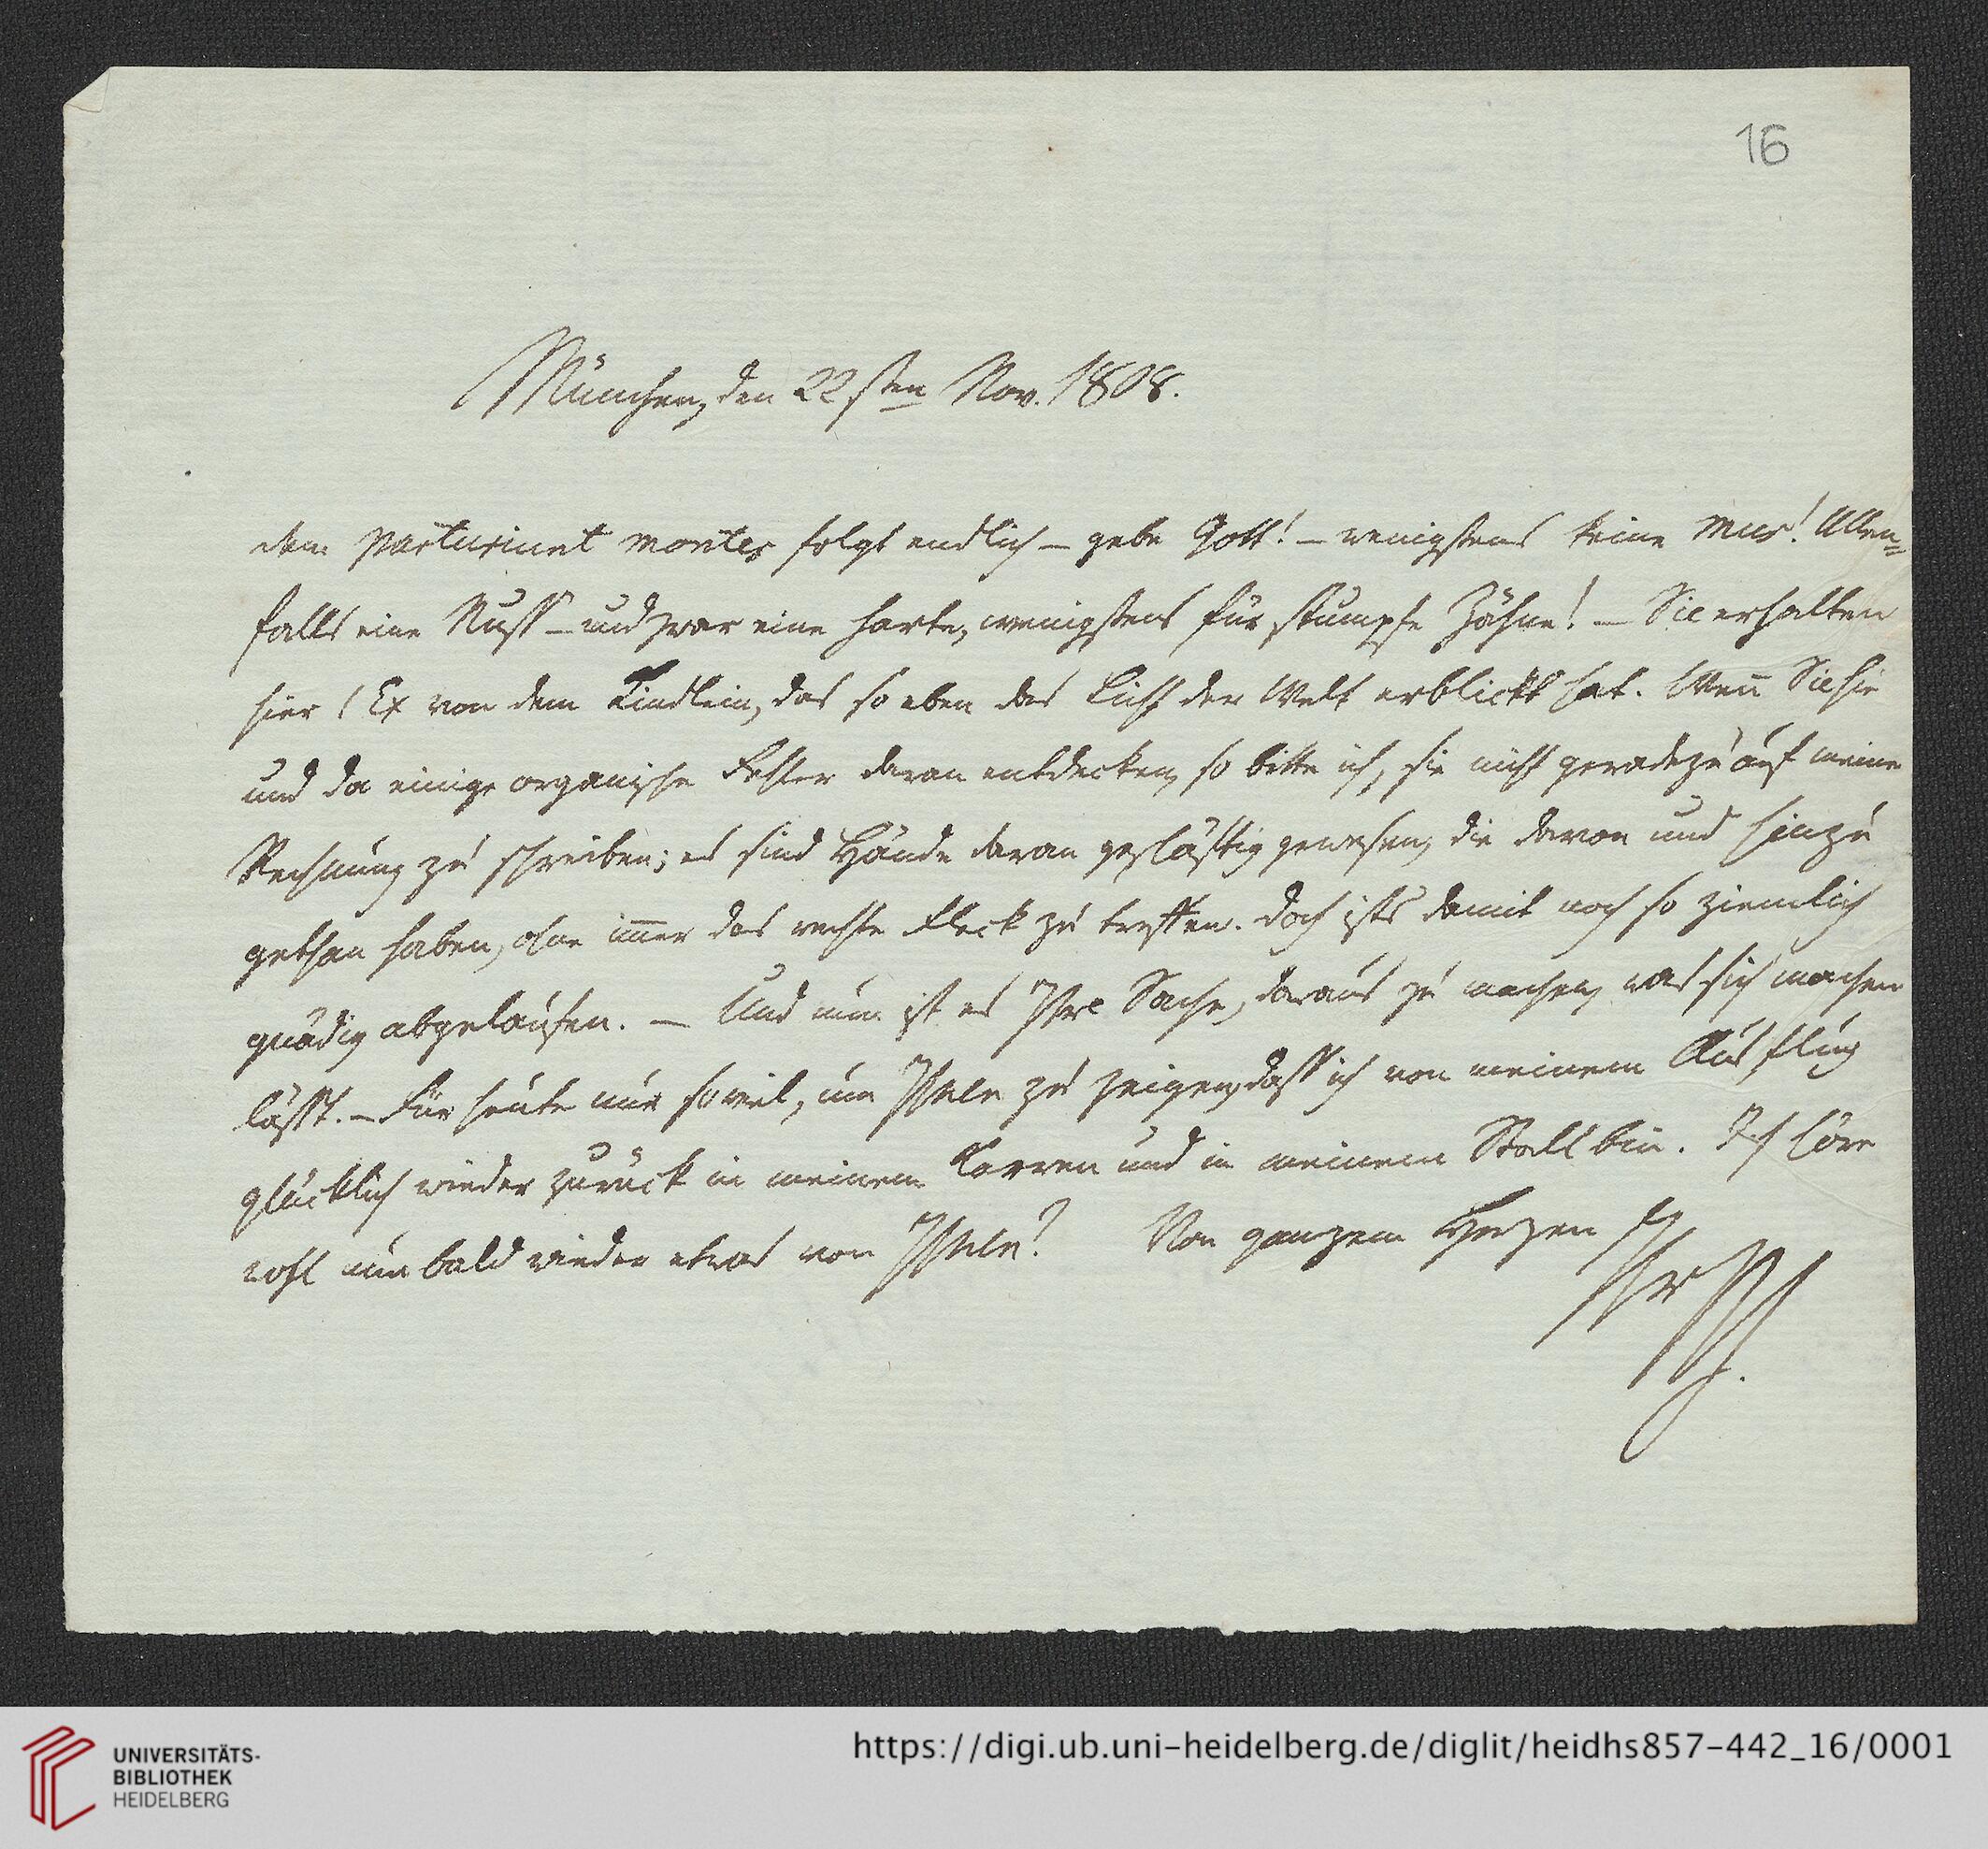 16
München, den 22sten Nov. 1808.
dem parturiunt montes folgt endlich – gebe Gott! – wenigstens keine mus! Allen=
falls eine Nuss – und zwar eine harte, wenigstens für stumpfe Zähne! – Sie erhalten
hier 1 Ex von dem Kindlein, das so eben das Licht der Welt erblickt hat. Wenn Sie hie
und da einige organische Fehler daran entdecken, so bitte ich, sie nicht geradezu auf meine
Rechnung zu schreiben; es sind Hände daran geschäftig gewesen, die davon und hinzu
gethan haben, ohne immer das rechte Fleck zu treffen. Doch ists damit noch so ziemlich
gnädig abgelaufen. – Und nun ist es Ihre Sache, daraus zu machen, was sich machen
lässt. – Für heute nur soviel, um Ihnen zu zeigen, dass ich von meinem Ausflug
glücklich wieder zurück in meinem Karren und in meinem Stall bin. Ich höre
wohl nun bald wieder etwas von Ihnen? Von ganzem Herzen
Ihr
UNIVERSITÄTS-
BIBLIOTHEK
HEIDELBERG
https://digi.ub.uni-heidelberg.de/diglit/heidhs857-442_16/0001